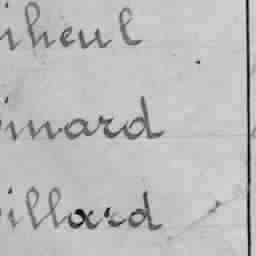 iheul
inard
illard